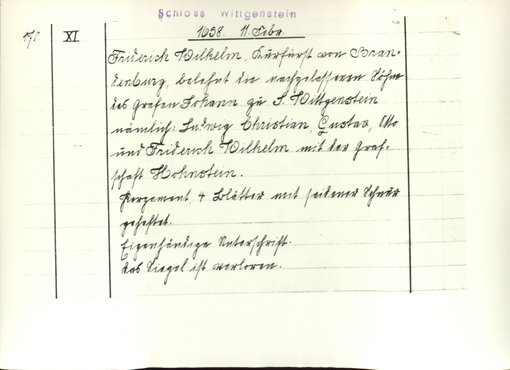 Schloss Wittgenstein
XI
1658. 11. Febr.
Friderich Wilhelm, Kurfürst von Bran-
denburg, belehnt die nachgelassenen Söhne
des Grafen Johann zu S. Wittgenstein
nämlich: Ludwig Christian, Gustav, Otto
und Friderich Wilhelm mit der Graf-
schaft Hohnstein.
Pergament, 4 Blätter mit seidener Schnur
geheftet.
Eigenhändige Unterschrift.
das Siegel ist verloren.